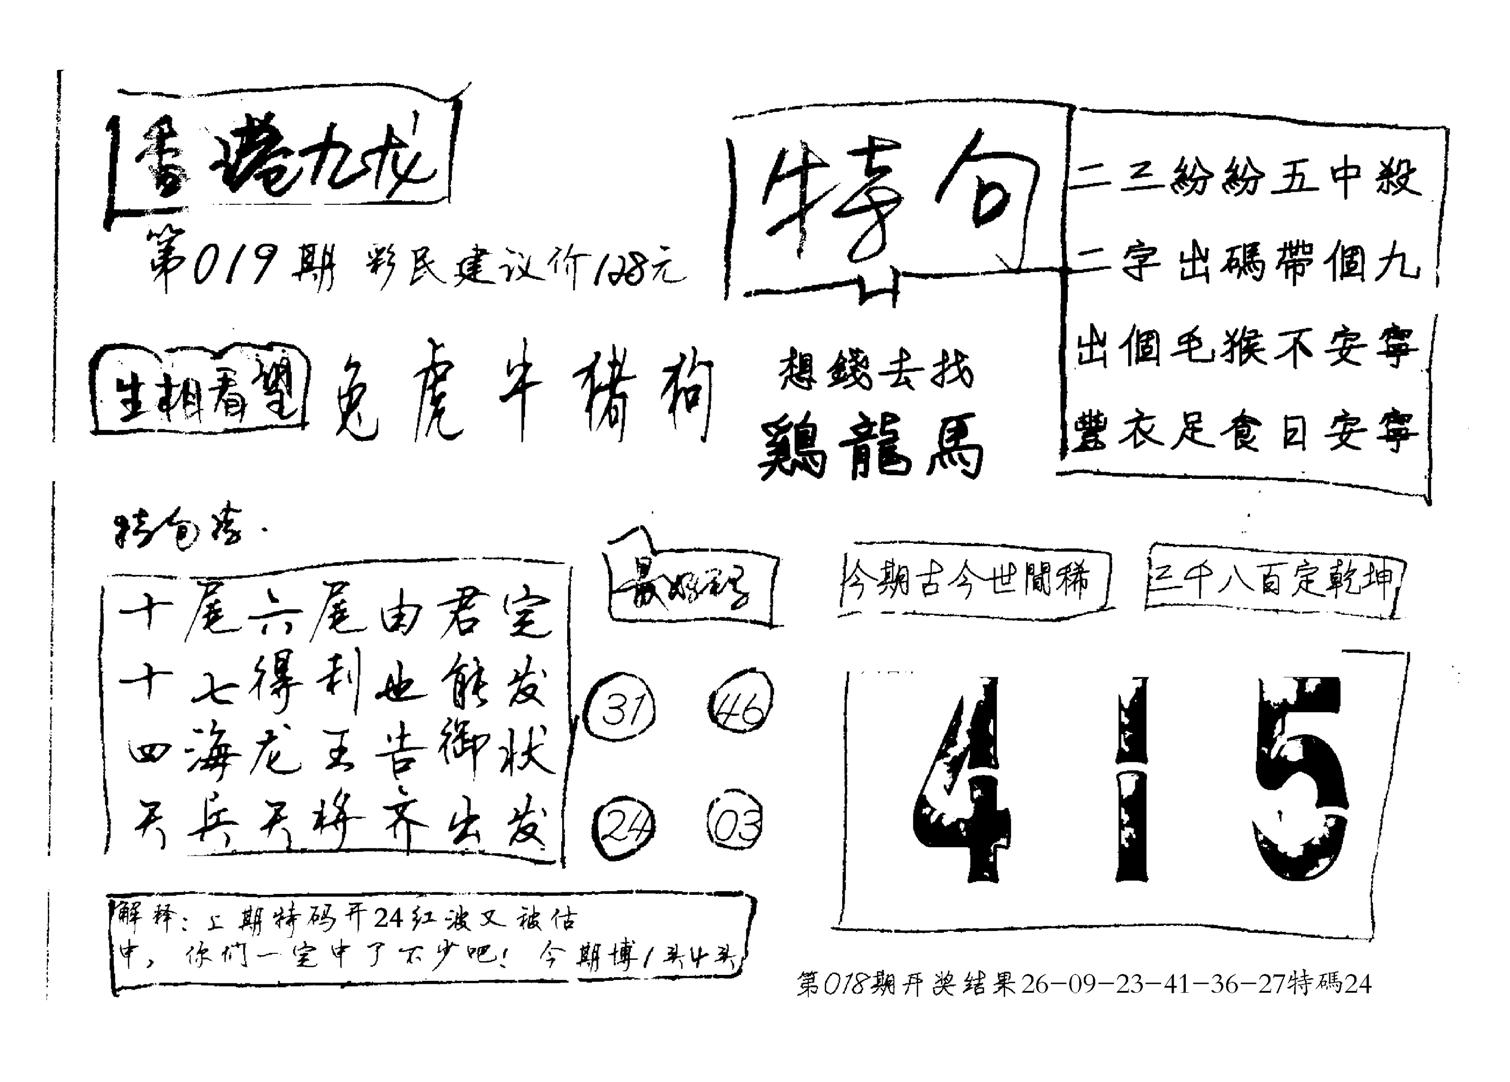 香港九龙
第019期 彩民建议价128元
特句
二三紛紛五中殺
二字出碼帶個九
出個毛猴不安寧
豐衣足食日安寧
生相看望
兔虎牛猪狗
想錢去找
鷄龍馬
十尾六尾由君定
十七得利也能发
四海龙王告御状
天兵天将齐出发
最好码
31 46
24 03
今期古今世間稀
三千八百定乾坤
415
解释：上期特码开24红波又被估
中，你们一定中了不少吧！今期博1头4头
第018期开奖结果26-09-23-41-36-27特碼24